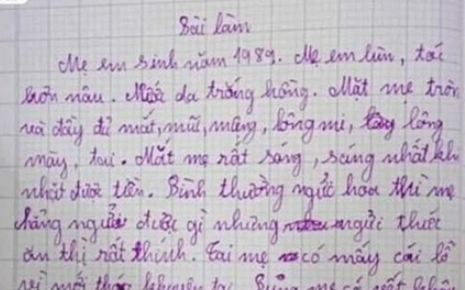 Bài làm
Mẹ em sinh năm 1989. Mẹ em lùn, tóc
hơn nâu. Màu da trắng hồng. Mặt mẹ tròn
và đầy đủ mắt, mũi, mệng, lông mi, lông
mày, tai. Mắt mẹ rất sáng, sáng nhất khi
nhặt được tiền. Bình thường ngửi hoa thì mẹ
chẳng ngửi được gì nhưng ngửi thức
ăn thì rất thính. Tai mẹ có mấy cái lỗ
vì mới khuyên tai. mẹ có rất